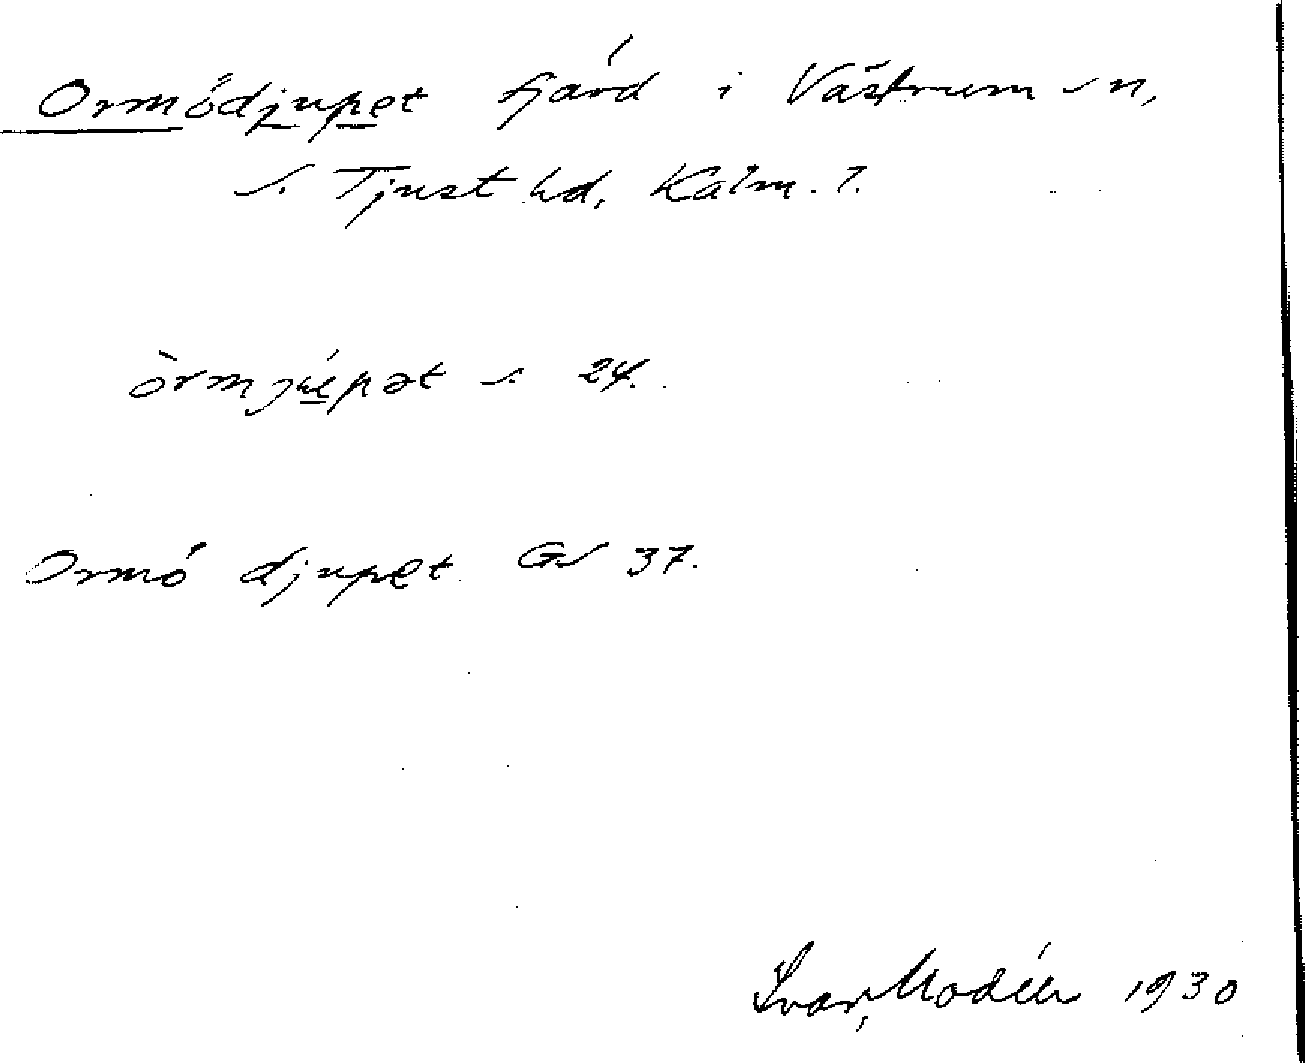 Ormödjupet fjärd i Västrum sn,
S. Tjust hd, Kalm. l.
s. 24.
Ormö djupet GS 37.
Ivar Modéer 1930